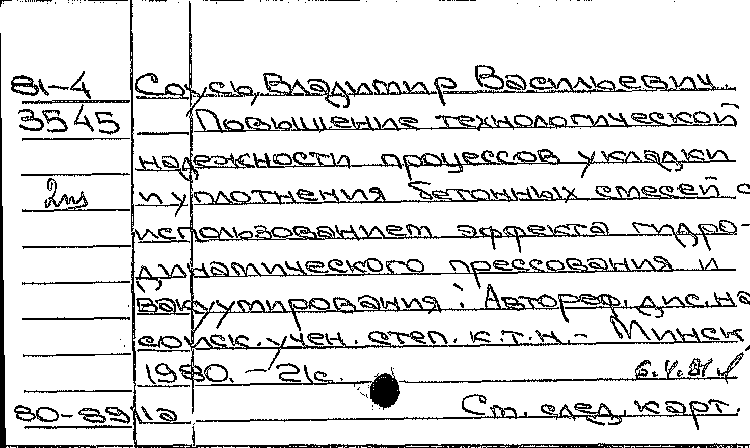 81-4 Соусь, Владимир Васильевич.
3545 Повышение технологической
надежности процессов укладки
2эк и уплотнения бетонных смесей с
использованием эффекта гидро-
динамического прессования и
вакуумирования : Автореф. дис. на
соиск. учен. степ. к.т.н. - Минск,
1980. - 21с. 6.V.81
80-8911а Ст. след. карт.